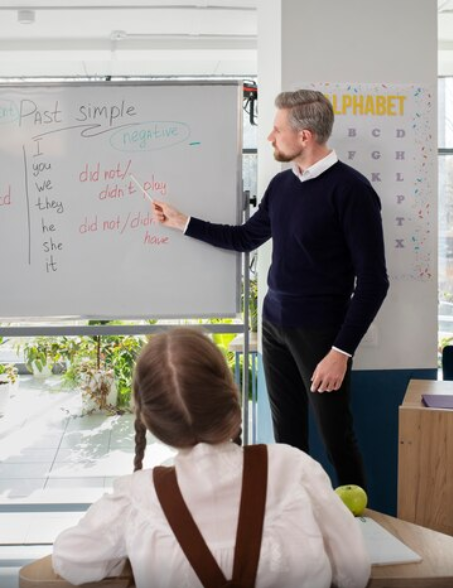 Past simple
negative
I
you
we
they
he
she
it
did not/
didn't play
did not/didn't
have
ALPHABET
B C D
F G H
K L
P
T
X